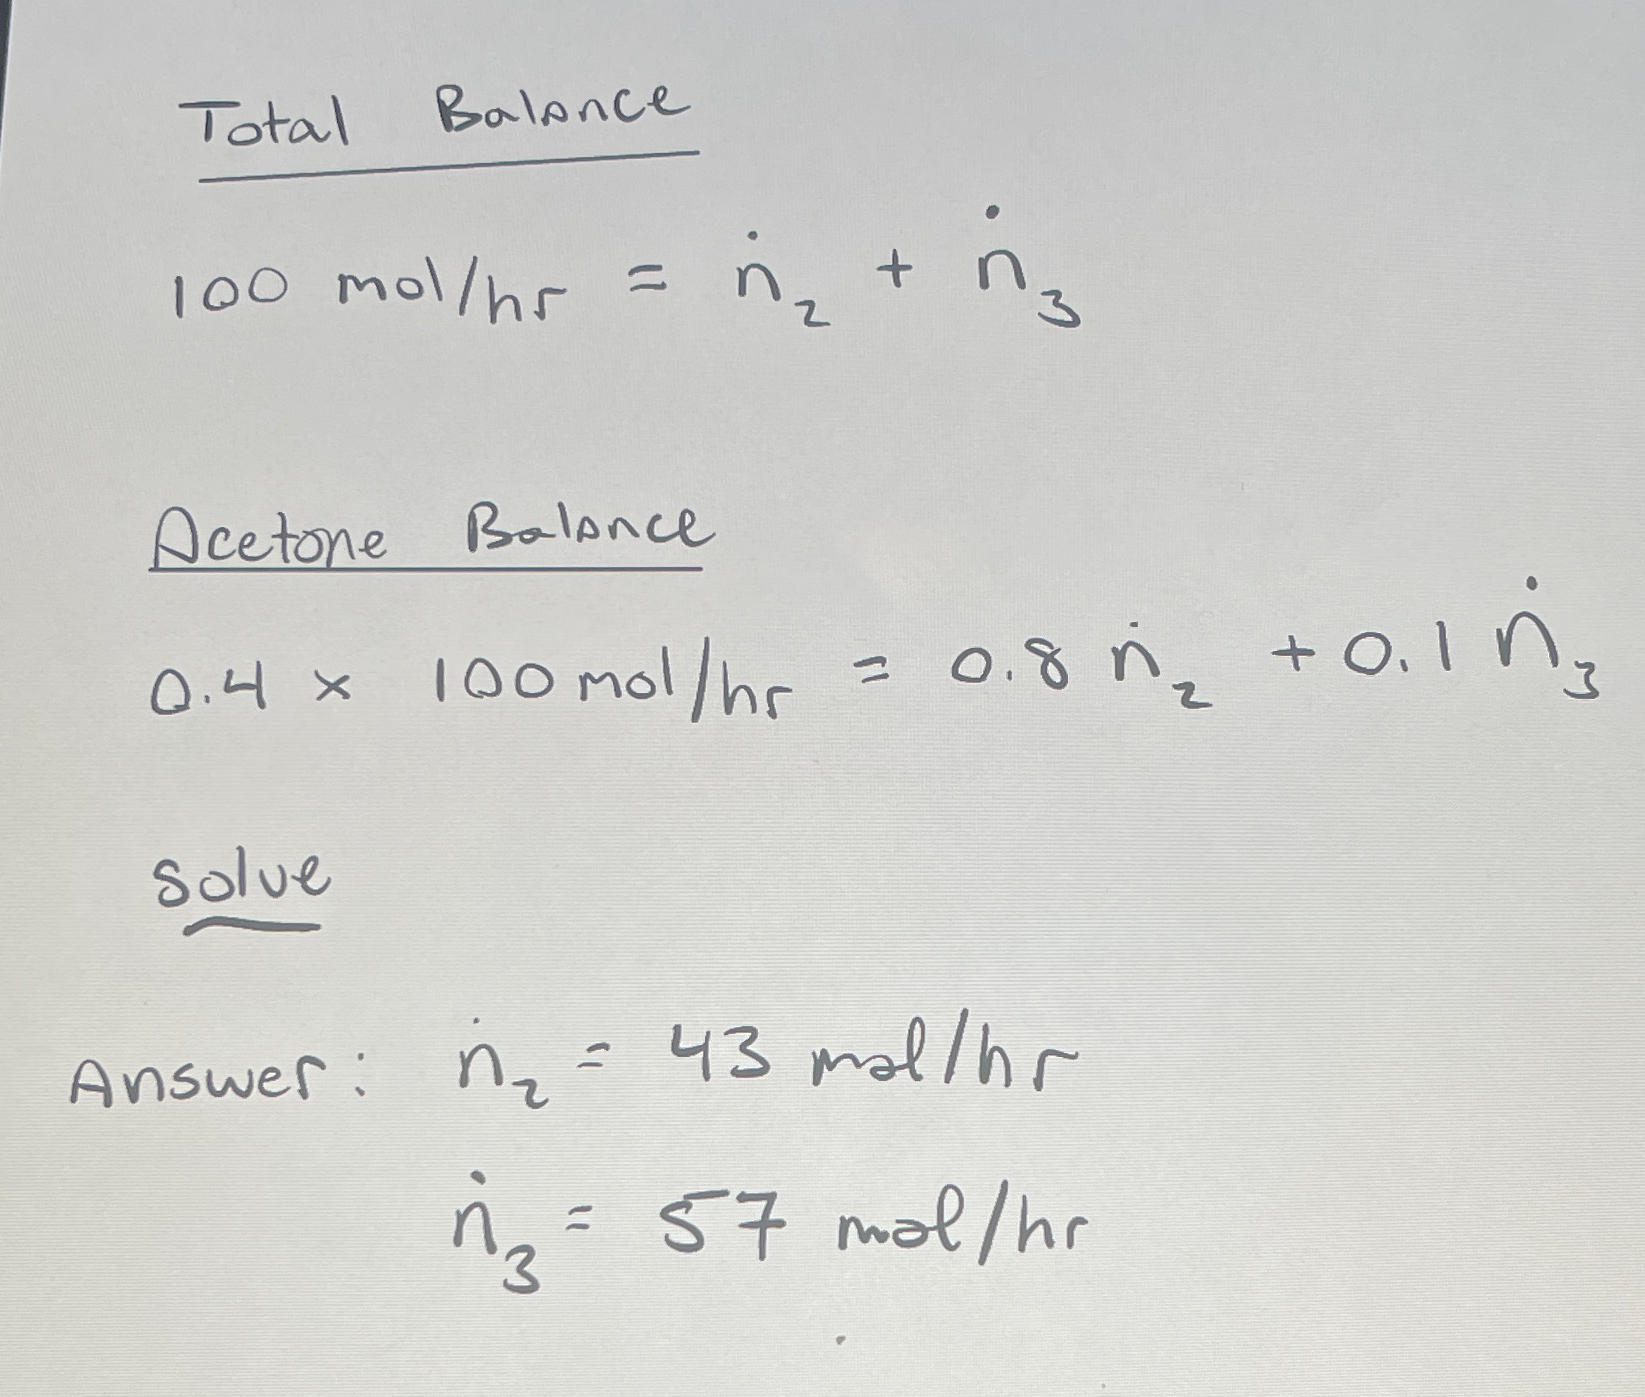 Total Balance
100 mol/hr = ṅ₂ + ṅ₃
Acetone Balance
0.4 × 100 mol/hr = 0.8 ṅ₂ + 0.1 ṅ₃
Solve
Answer: ṅ₂ = 43 mol/hr
ṅ₃ = 57 mol/hr